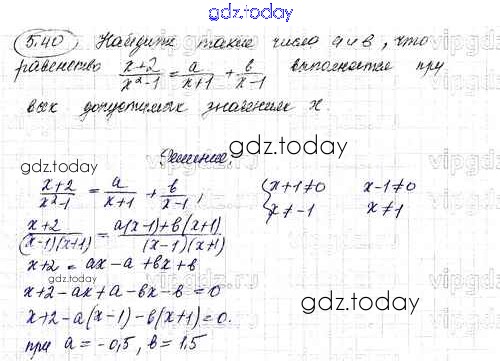 gdz.today
5.40 Найдите такие числа a и в, что
равенство \frac{x+2}{x²-1} = \frac{a}{x+1} + \frac{в}{x-1} выполняется при
всех допустимых значениях x.
gdz.today
Решение.
gdz.today
\frac{x+2}{x²-1} = \frac{a}{x+1} + \frac{в}{x-1}, { x+1≠0 x-1≠0
x≠-1 x≠1
\frac{x+2}{(x-1)(x+1)} = \frac{a(x-1)+в(x+1)}{(x-1)(x+1)}
gdz.today
x+2 = ax-a+вx+в
x+2-ax+a-вx-в=0
gdz.today
x+2-a(x-1)-в(x+1)=0.
при a=-0,5, в=1,5
gdz.today